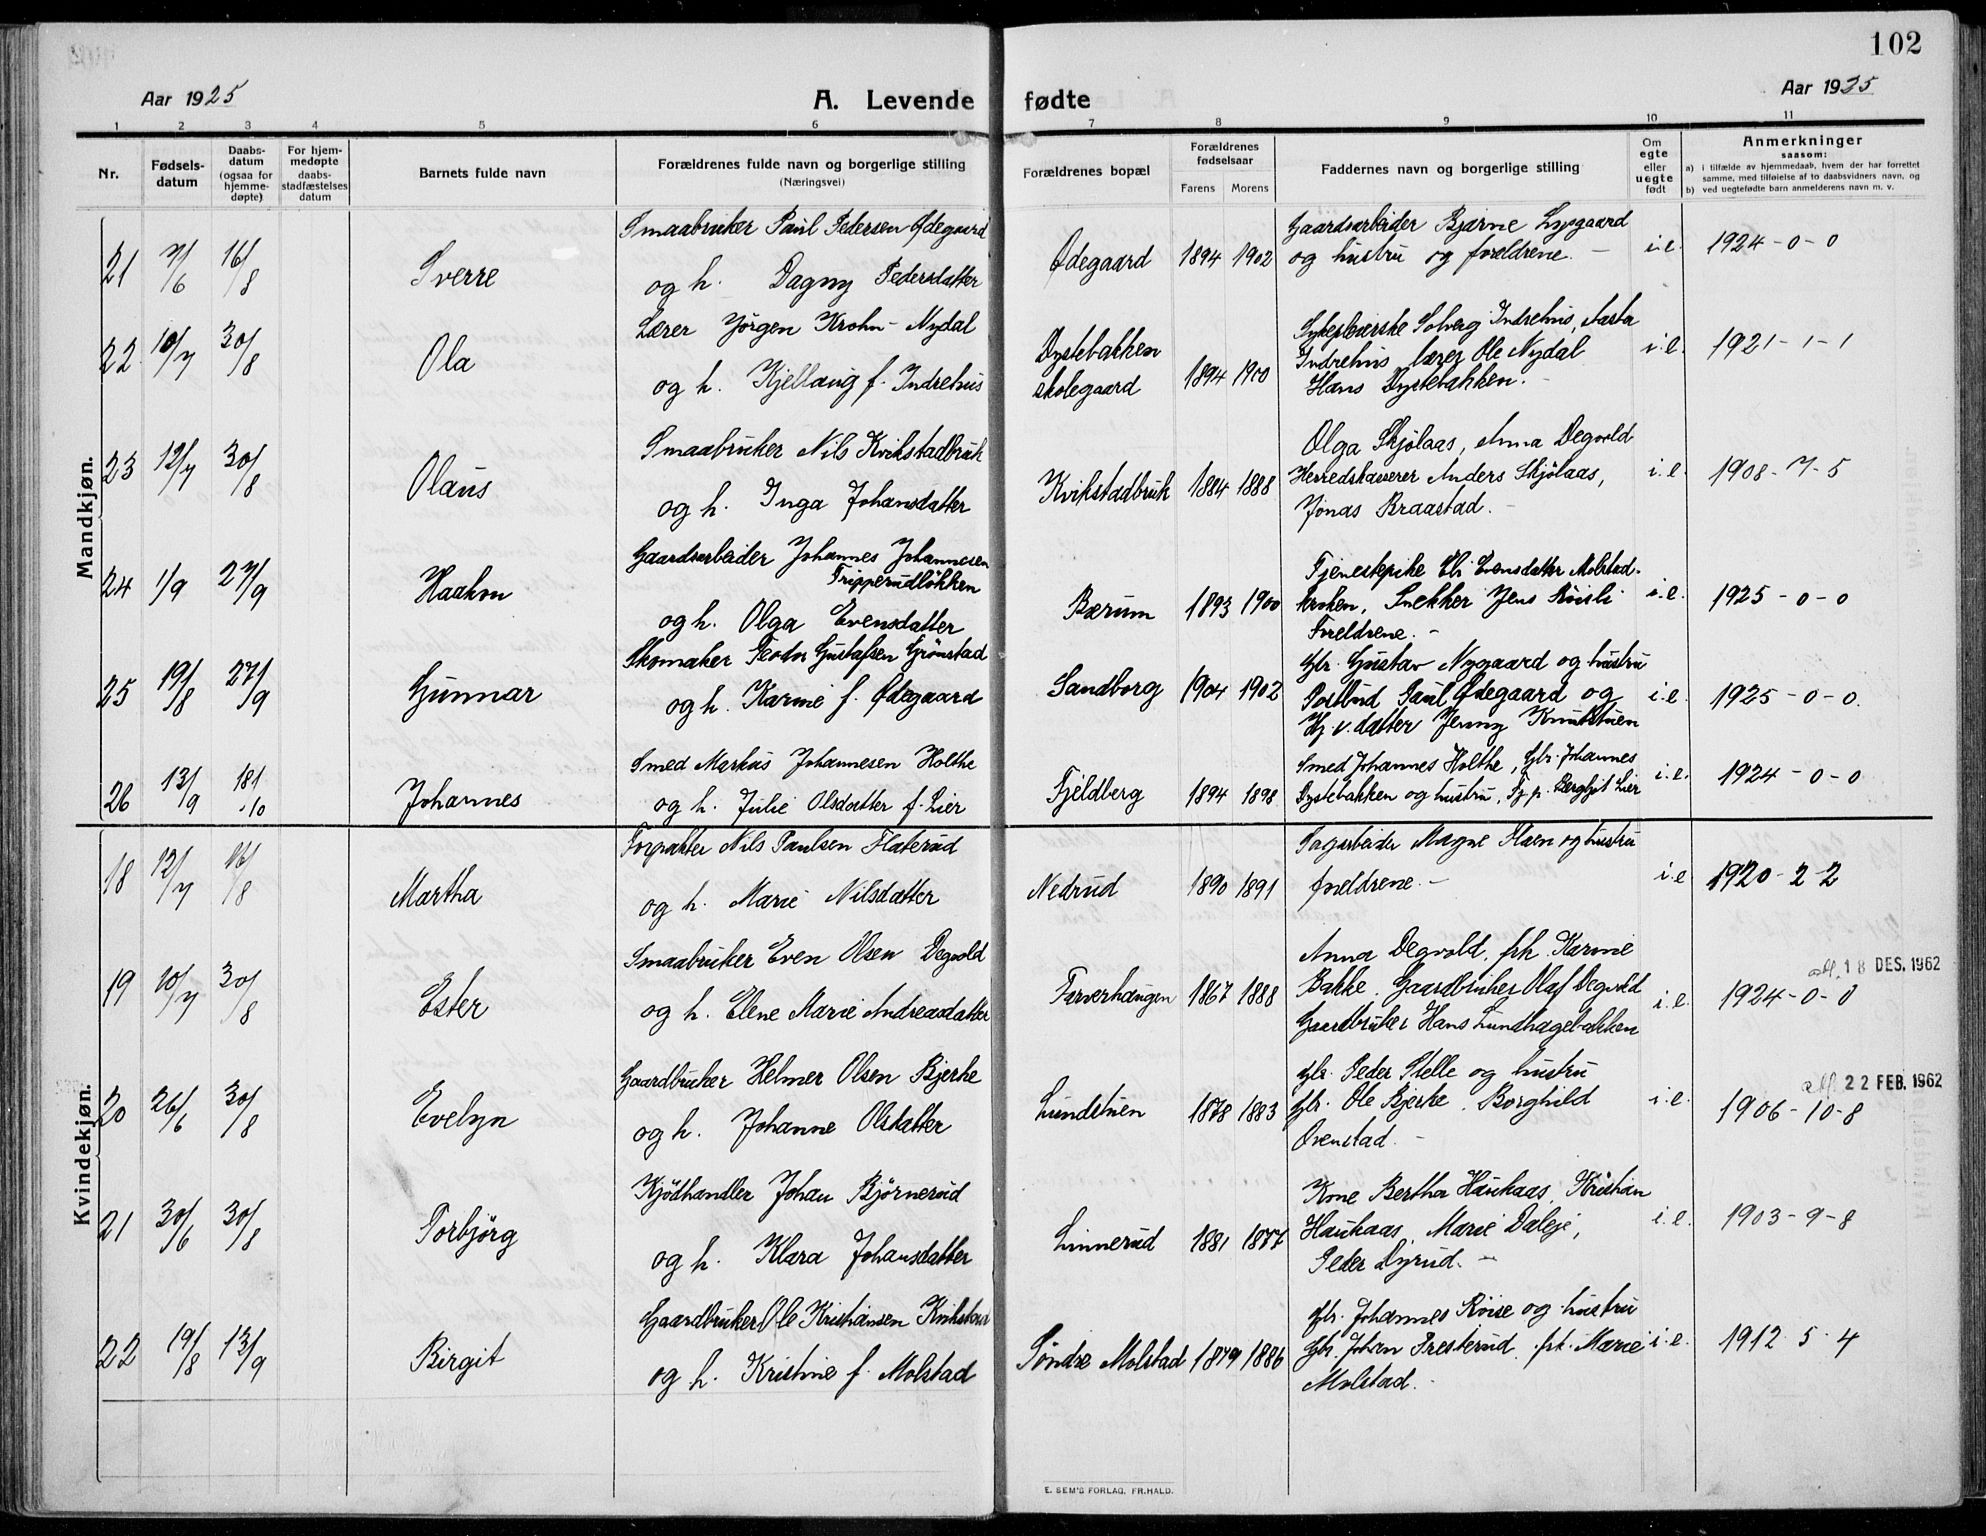 102
Aar 1925 A. Levende fødte Aar 1925
1 2 3 4 5 6 7 8 9 10 11
Nr. Fødsels-datum Daabs-datum (ogsaa for hjemme-døpte) For hjem-medøpte daabs-stadfæstelses datum Barnets fulde navn Forældrenes fulde navn og borgerlige stilling (Næringsvei) Forældrenes bopæl Forældrenes fødselsaar Farens Morens Faddernes navn og borgerlige stilling Om egte eller uegte født Anmerkninger saasom:
a) i tilfælde av hjemmedaab, hvem der har forrettet samme, med tilføielse af to daabsvidners navn, og
b) ved uegtefødte barn anmelderens navn m. v.
Mandkjøn.
Smaabruker Paul Pedersen Ødegaard Gaardsarbeider Bjarne
21 7/6 16/8 Sverre og h. Dagny Pedersdatter Ødegaard 1894 1902 og hustru og foreldrene. – i.e. 1924-0-0
Lærer Jörgen Krohn-Nydal Sykepleierske Solveig Indrehus, Aasta
22 10/7 30/8 Ola og h. Kjellaug f. Indrehus Dystebakken skolegaard 1894 1900 Indrehus, lærer Ole Nydal i.e. 1921-1-1
Hans Dystebakken. –
Smaabruker Nils Kvikstadbruk Olga Skjölaas, Anna Degvold
23 12/7 30/8 Olaus og h. Inga Johansdatter Kvikstadbruk 1884 1888 Herredskasserer Anders Skjölaas, i.e. 1908-7-5
Jonas Braastad. –
Gaardsarbeider Johannes Johannesen Tjenestepike Evensdatter Molstad-
Tripperudløkken
24 1/9 27/9 Haakon og h. Olga Evensdatter Bærum 1893 1900 kroken, Snekker Jens i.e. 1925-0-0
Foreldrene. –
Skomaker Teodor Gustafsen Grönstad Gbr. Gustav Nygaard og hustru
25 19/8 27/9 Gunnar og h. Karine f. Ødegaard Sandborg 1904 1902 Postbud Paul Ødegaard og i.e. 1925-0-0.
datter Jenny Knutstuen
Smed Markus Johannesen Holthe Smed Johannes Holthe, Gbr. Johannes
26 13/9 18/10 Johannes og h. Julie Olsdatter f. Lier Fjeldberg 1894 1898 Dystebakken og hustru, Tj.p. Bergljot Lier i.e. 1924-0-0
Kvindekjøn.
Forpakter Nils Paulsen Flaterud Sagarbeider Magne Haen og hustru
18 12/7 16/8 Martha og h. Marie Nilsdatter Nedrud 1890 1891 foreldrene. – i.e 1920-2-2
Smaabruker Even Olsen Degvold Anna Degvold, frk. Karine
19 10/7 30/8 Ester og h. Elene Marie Andreasdatter Farverhaugen 1867 1888 Bakke. Gaardbruker Olaf Degvold i.e. 18 DES. 1962 1924-0-0
Gaardbruker Hans Lundhagebakken
Gaardbruker Helmer Olsen Bjerke Gbr. Peder Stelle og hustru
20 26/6 30/8 Evelyn og h. Johanne Olsdatter Lundstuen 1878 1883 Gbr. Ole Bjerke. Borghild i.e. 22 FEB. 1962 1906-10-8
Ovenstad. –
Kjödhandler Johan Björnerud Kone Bertha Haukaas, Kristian
21 30/6 30/8 Torbjörg og h. Klara Johansdatter Linnerud 1881 1877 Haukaas, Marie i.e. 1903-9-8
Peder Dyrud. –
Gaardbruker Ole Kristiansen Kvikstad Gbr. Johannes Röise og hustru
22 19/8 13/9 Birgit og h. Kristine f. Molstad Söndre Molstad 1879 1886 Gbr. Johan Presterud. frk. Marie i.e. 1912-5-4
Molstad. –
E. SEM'S FORLAG, FR.HALD.